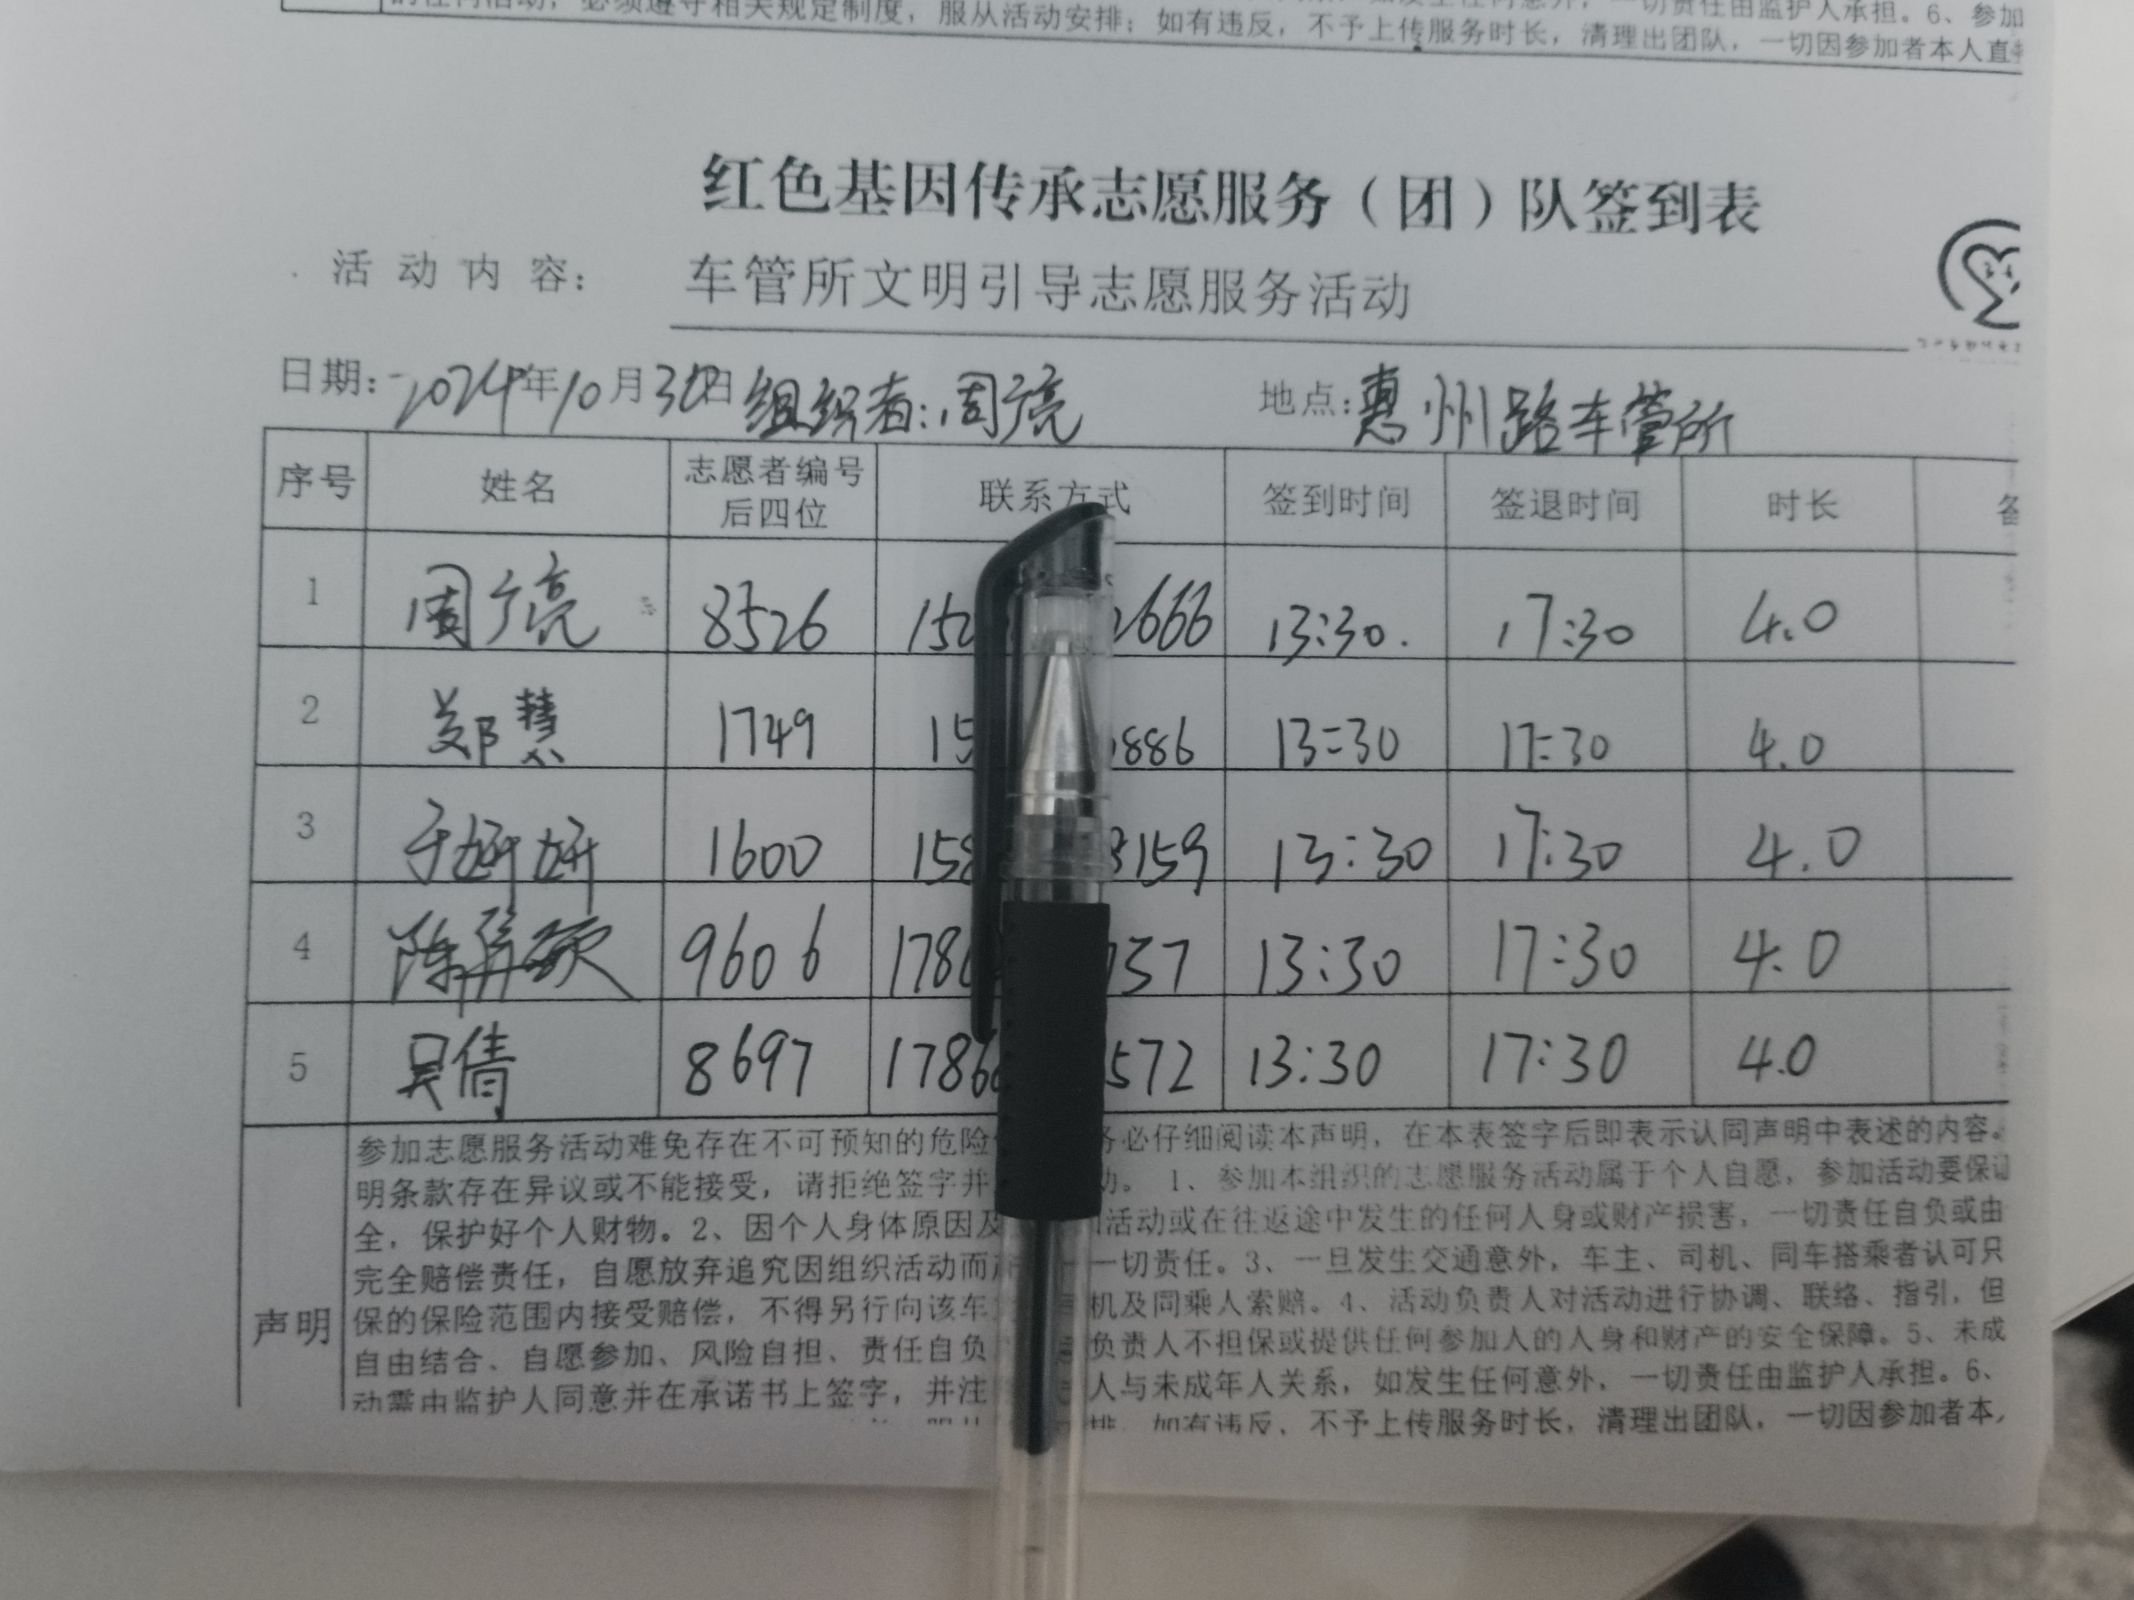 必须遵守相关规定制度，服从活动安排；如有违反，不予上传服务时长，清理出团队，一切因参加者本人直
一切责任由监护人承担。6、参加
红色基因传承志愿服务（团）队签到表
活动内容： 车管所文明引导志愿服务活动
日期：2024年10月30日 组织者：周广亮 地点：惠州路车管所
序号 姓名 志愿者编号后四位 联系方式 签到时间 签退时间 时长
1 周广亮 8526 152 2666 13:30. 17:30 4.0
2 郑慧 1749 15 886 13:30 17:30 4.0
3 于妍妍 1600 158 3159 13:30 17:30 4.0
4 陈 9606 178 737 13:30 17:30 4.0
5 吴倩 8697 1786 572 13:30 17:30 4.0
声明
参加志愿服务活动难免存在不可预知的危险 务必仔细阅读本声明，在本表签字后即表示认同声明中表述的内容。
明条款存在异议或不能接受，请拒绝签字并 动。 1、参加本组织的志愿服务活动属于个人自愿，参加活动要保证
全，保护好个人财物。2、因个人身体原因及 活动或在往返途中发生的任何人身或财产损害，一切责任自负或由
完全赔偿责任，自愿放弃追究因组织活动而产 一切责任。3、一旦发生交通意外，车主、司机、同车搭乘者认可只
保的保险范围内接受赔偿，不得另行向该车 机及同乘人索赔。4、活动负责人对活动进行协调、联络、指引，但
自由结合、自愿参加、风险自担、责任自负 负责人不担保或提供任何参加人的人身和财产的安全保障。5、未成
动需由监护人同意并在承诺书上签字，并注 人与未成年人关系，如发生任何意外，一切责任由监护人承担。6、
排，如有违反，不予上传服务时长，清理出团队，一切因参加者本